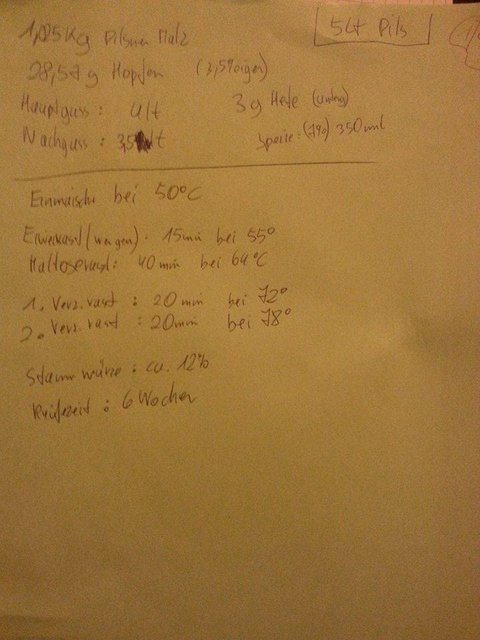 5Lt Pils
1,025Kg Pilsner Malz
28,57g Hopfen (3,5%igen)
Hauptguss: 4lt 3g Hefe
Nachguss: 3,5 lt Speise: (7%) 350ml
Einmaische bei 50°C
Eiweissrast (wenigen). 15min bei 55°
Maltoserast: 40min bei 64°C
1. Verz.rast : 20min bei 72°
2. Verz.rast : 20min bei 78°
Stammwürze: ca. 12%
Reifezeit: 6 Wochen